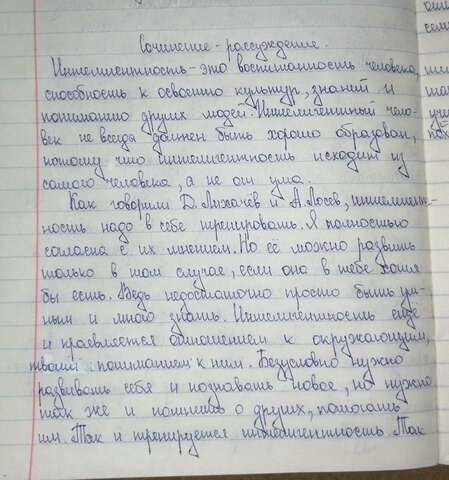 Сочинение - рассуждение.
Интеллигентность - это воспитанность человека,
способность к освоению культур, знаний и
пониманию других людей. Интеллигентный чело-
век не всегда должен быть хорошо образован,
потому что интеллигентность исходит из
самого человека, а не от ума.
Как говорили Д. Лихачёв и А. Лосев, интеллигент-
ность надо в себе тренировать. Я полностью
согласна с их мнением. Но её можно развить
только в том случае, если она в тебе хотя
бы есть. Ведь недостаточно просто быть ум-
ным и много знать. Интеллигентность ещё
и проявляется отношением к окружающим,
твоим пониманием к ним. Безусловно нужно
развивать себя и познавать новое, но нужно
так же и помнить о других, помогать
им. Так и тренируется интеллигентность. Так